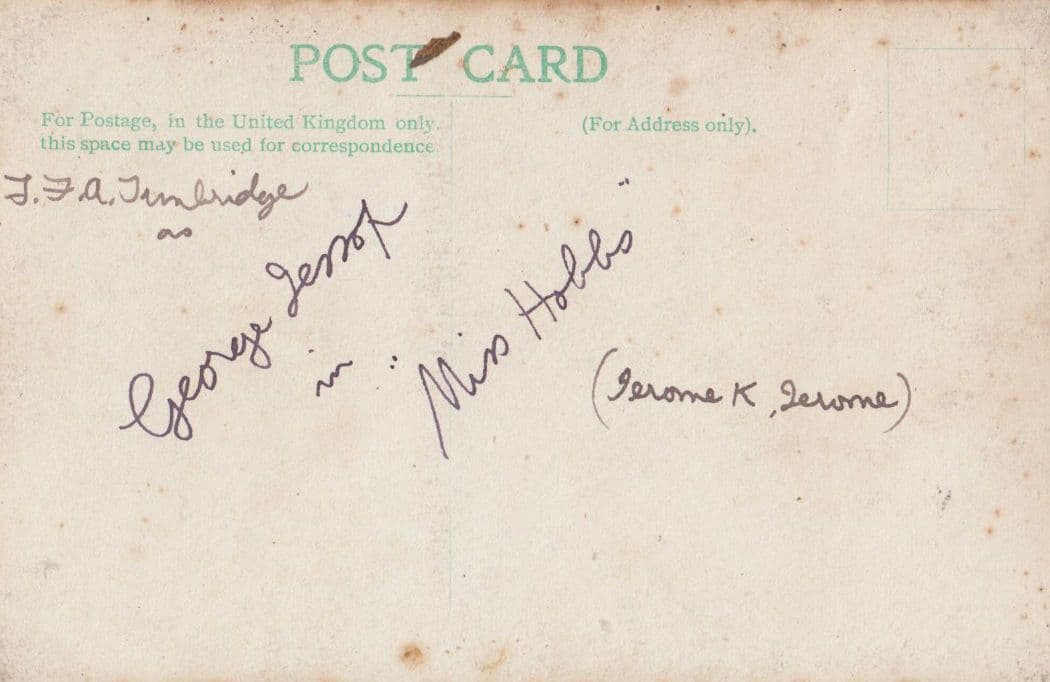 POST CARD
For Postage, in the United Kingdom only.
this space may be used for correspondence
(For Address only).
T. F. A. Timbridge
as
George Jessop
in "Miss Hobbs"
(Jerome K. Jerome)